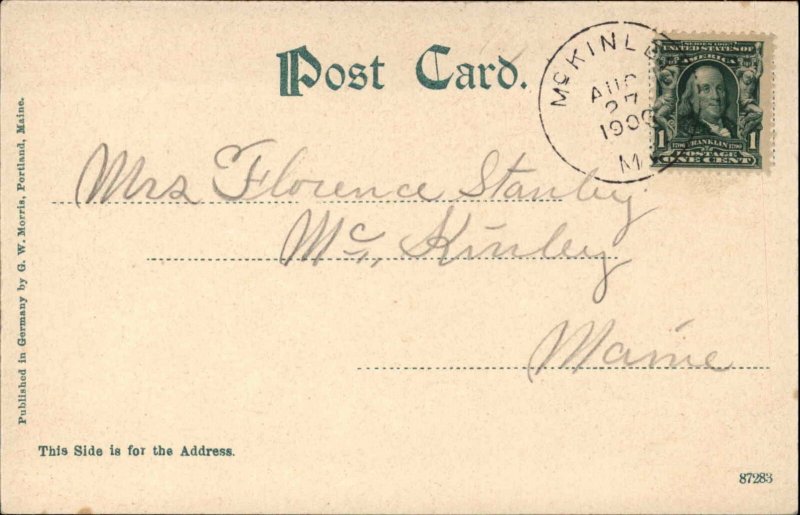 Post Card.
McKINLE
AUG
27
190
M
SERIES 1902
UNITED STATES OF
AMERICA
1 1706 FRANKLIN 1790 1
POSTAGE
ONE CENT
Mrs Florence Stanley
Mc, Kinley
Maine
Published in Germany by G. W. Morris, Portland, Maine.
This Side is for the Address.
87283